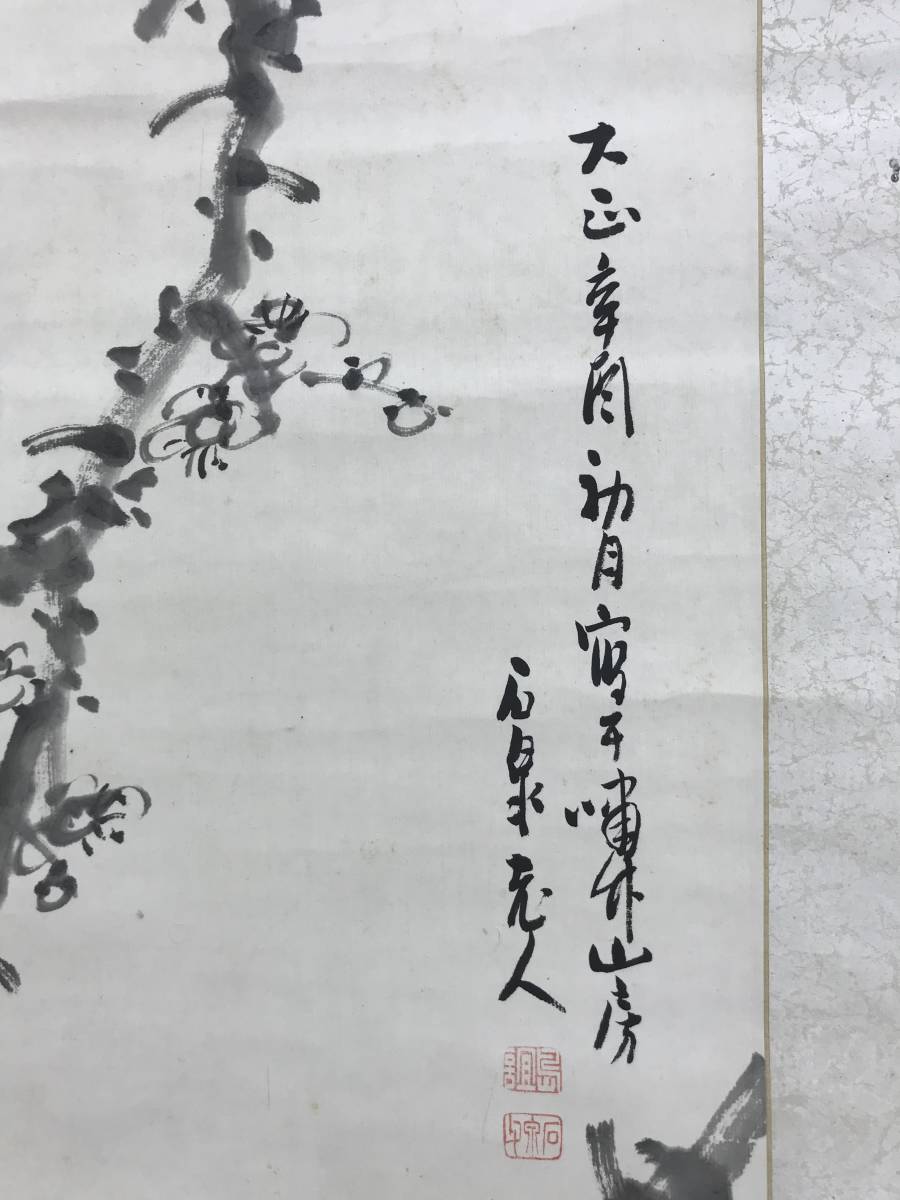 大正辛酉初月寫于嘯竹山房
石泉老人